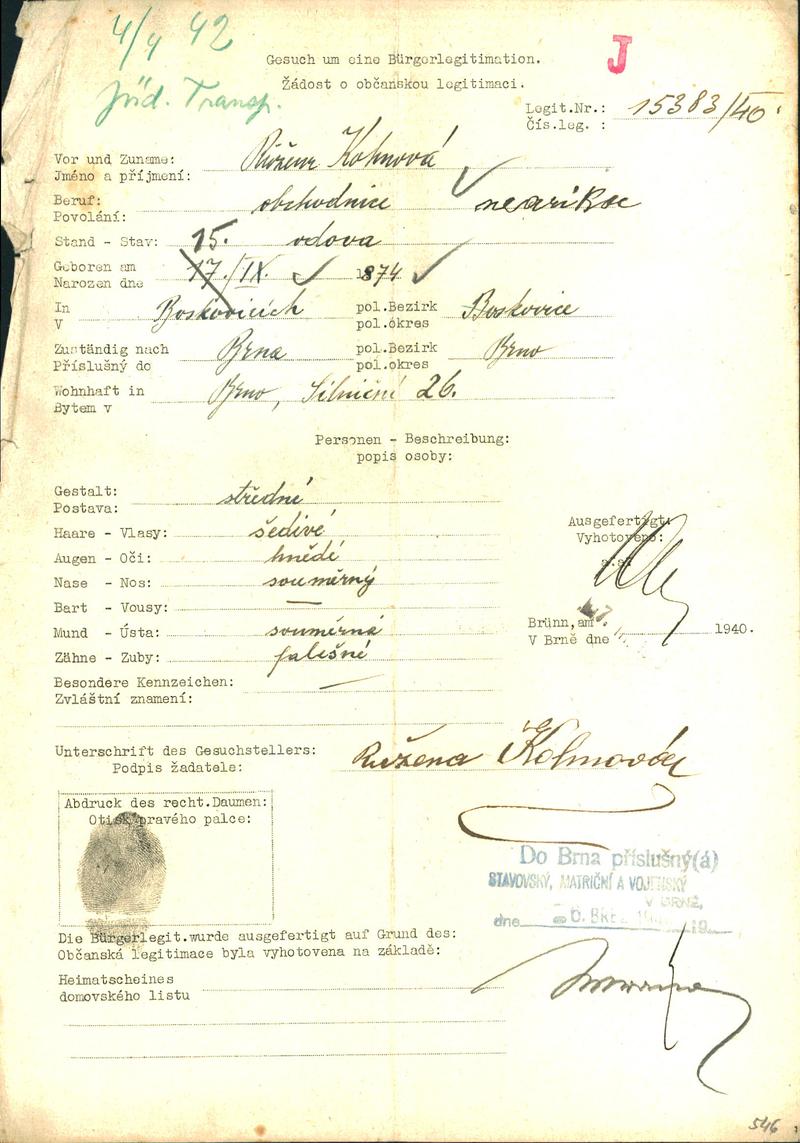 4/4 42
Jüd. Transp.
J
Gesuch um eine Bürgerlegitimation.
Žádost o občanskou legitimaci.
Legit.Nr.: 15383/40
Čís.leg. :
Vor und Zuname: Růžena Kohnová
Jméno a příjmení:
Beruf: obchodnice nearikse
Povolání:
Stand - Stav: vdova
15.
Geboren am 17./IX. 1874
Narozen dne
In Boskovicích pol.Bezirk Boskovice
V pol.okres
Zuständig nach Brna pol.Bezirk Brno
Příslušný do pol.okres
Wohnhaft in Brno, Silniční 26.
Bytem v
Personen - Beschreibung:
popis osoby:
Gestalt: střední
Postava:
Haare - Vlasy: šedivé
Augen - Oči: hnědé
Nase - Nos: souměrný
Bart - Vousy: —
Mund - Ústa: souměrná
Zähne - Zuby: falešné
Besondere Kennzeichen: —
Zvláštní znamení:
Ausgefertigt:
Vyhotoveno:
Brünn, am 1940.
V Brně dne
Unterschrift des Gesuchstellers: Ružena Kohnová
Podpis žadatele:
Abdruck des recht.Daumen:
Otisk pravého palce:
Do Brna příslušný(á)
STAVOVSKÝ, MATRIČNÍ A VOJENSKÝ
V BRNĚ,
dne 6. BŘEZ. 19
Die Bürgerlegit.wurde ausgefertigt auf Grund des:
Občanská legitimace byla vyhotovena na základě:
Heimatscheines
domovského listu
546